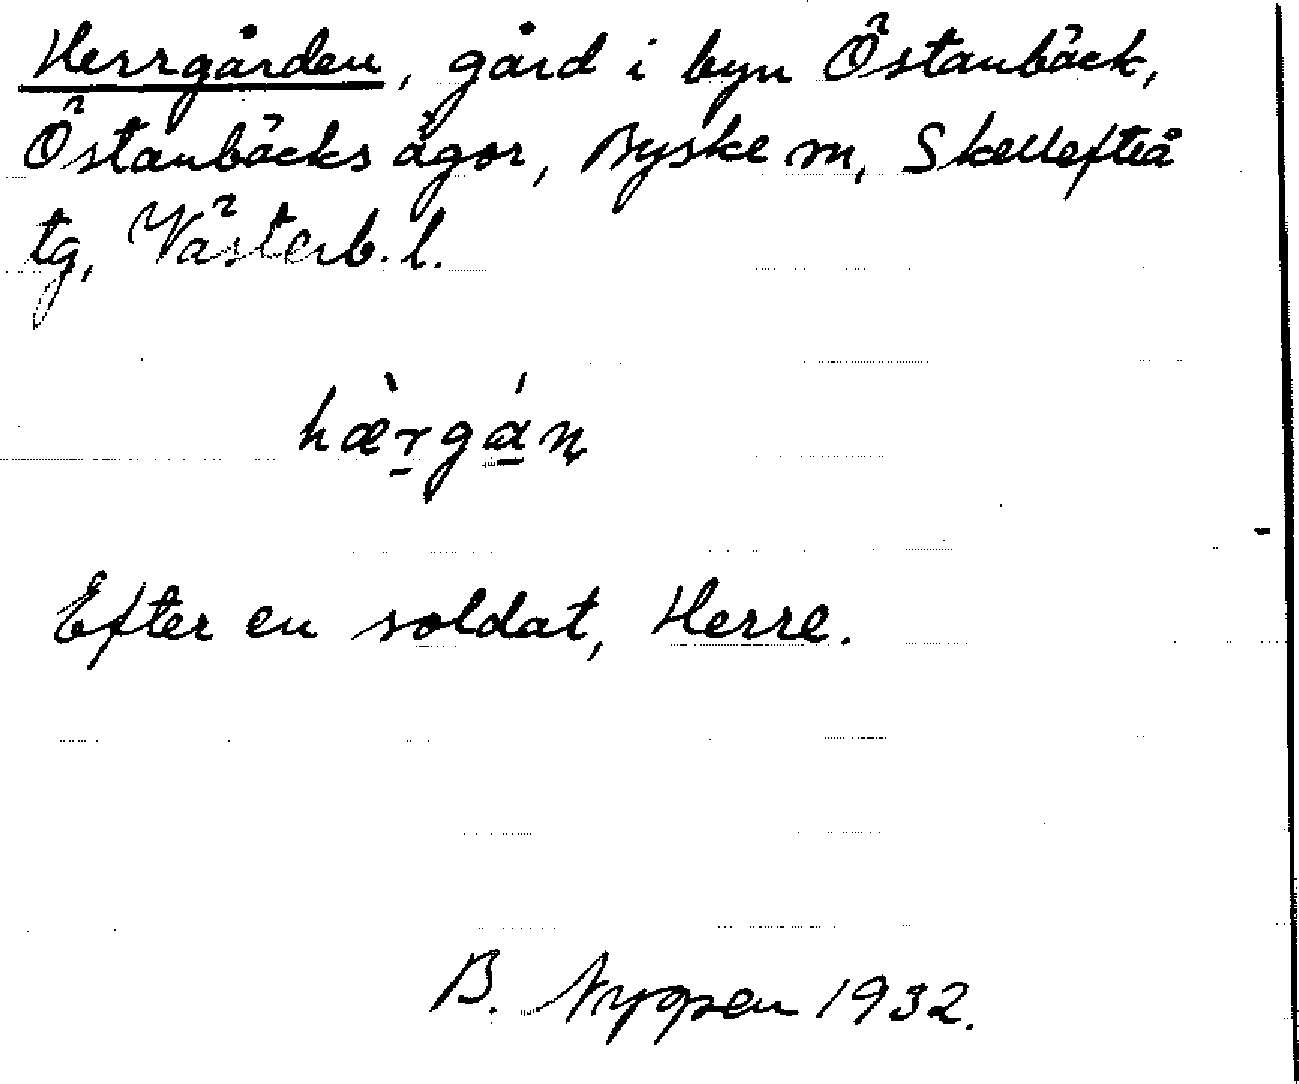 Herrgården, gård i byn Östanbäck,
Östanbäcks ägor, Byske sn, Skellefteå
tg, Västerb. l.
hæ̀r̠gá̠ɳ
Efter en soldat, Herre.
B. 1932.